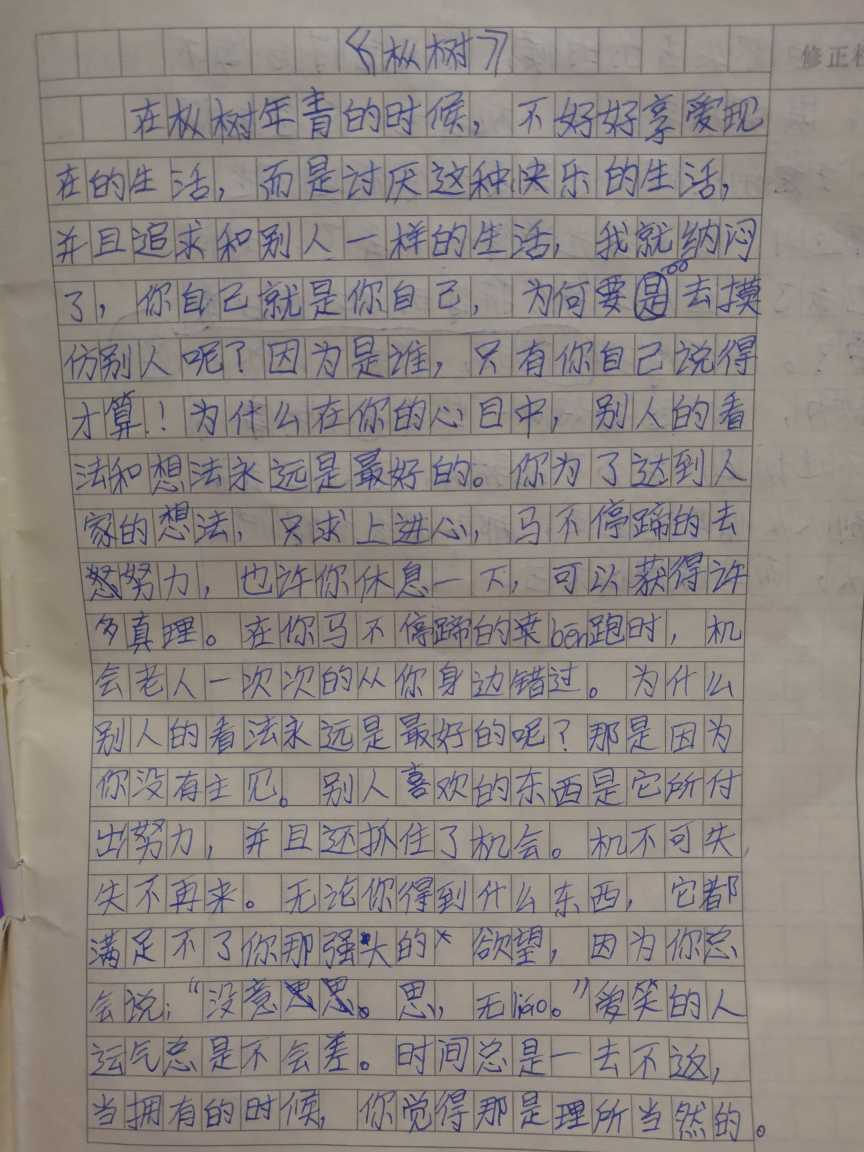 《枞树》
修正栏
在枞树年青的时候，不好好享爱现
在的生活，而是讨厌这种快乐的生活，
并且追求和别人一样的生活，我就纳闷
了，你自己就是你自己，为何要是去摸
仿别人呢？因为是谁，只有你自己说得
才算！为什么在你的心目中，别人的看
法和想法永远是最好的。你为了达到人
家的想法，只求上进心，马不停蹄的去
努力，也许你休息一下，可以获得许
多真理。在你马不停蹄的bēn跑时，机
会老人一次次的从你身边错过。为什么
别人的看法永远是最好的呢？那是因为
你没有主见。别人喜欢的东西是它所付
出努力，并且还抓住了机会。机不可失，
失不再来。无论你得到什么东西，它都
满足不了你那强大的欲望，因为你总
会说：“没意思，无liáo。”爱笑的人
运气总是不会差。时间总是一去不返，
当拥有的时候，你觉得那是理所当然的。